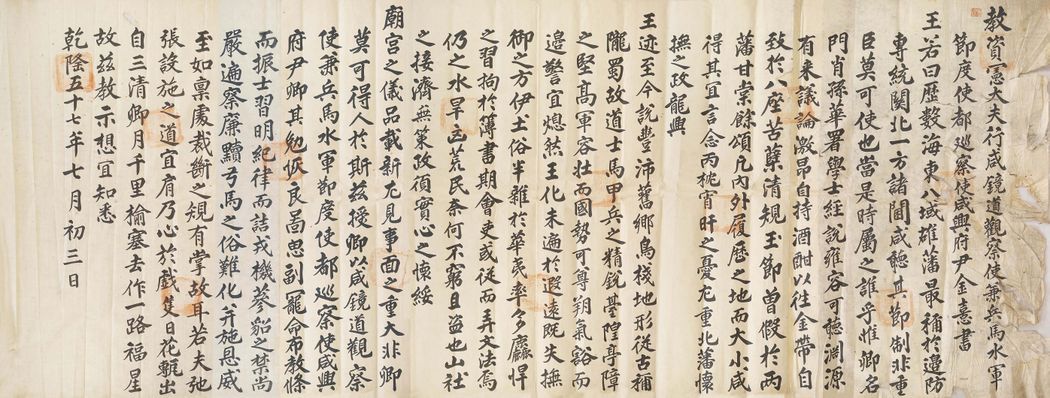 教資憲大夫行咸鏡道觀察使兼兵馬水軍
節度使都巡察使咸興府尹金憙書
王若曰歷數海東八域雄藩最稱於邊防
專統關北一方諸閫咸聽其節制非重
臣莫可使也當是時屬之誰乎惟卿名
門肖孫華署學士經說雍容可聽淵源
有來議論激昂自持酒酣以往金帶自
致於八座苦蘗清規玉節曾假於兩
藩甘棠餘頌凡內外履歷之地而大小咸
得其宜言念丙枕宵旰之憂尤重北藩懷
撫之政龍興
王迹至今說豐沛舊鄉鳥棧地形從古稱
隴蜀故道士馬甲兵之精銳臺隍亭障
之堅高軍容壯而國勢可尊朔氣豁而
邊警宜熄然王化未遍於遐遠既失撫
御之方伊土俗半雜於華夷率多麤悍
之習拘於簿書期會吏或從而弄文法焉
仍之水旱荒民奈何不窮且盜也山社
之接濟無策政須實心之懷綏
廟宮之儀品載新尤見事面之重大非卿
莫可得人於斯茲授卿以咸鏡道觀察
使兼兵馬水軍節度使都巡察使咸興
府尹卿其勉恢良啚思副寵命布教條
而振士習明紀律而詰戎機蔘貂之禁尚
嚴遍察廉黷弓馬之俗難化并施恩威
至如稟處裁斷之規有掌故耳若夫弛
張設施之道宜肩乃心於戲隻日花甎出
自三清卿月千里榆塞去作一路福星
故茲教示想宜知悉
乾隆五十七年七月初三日